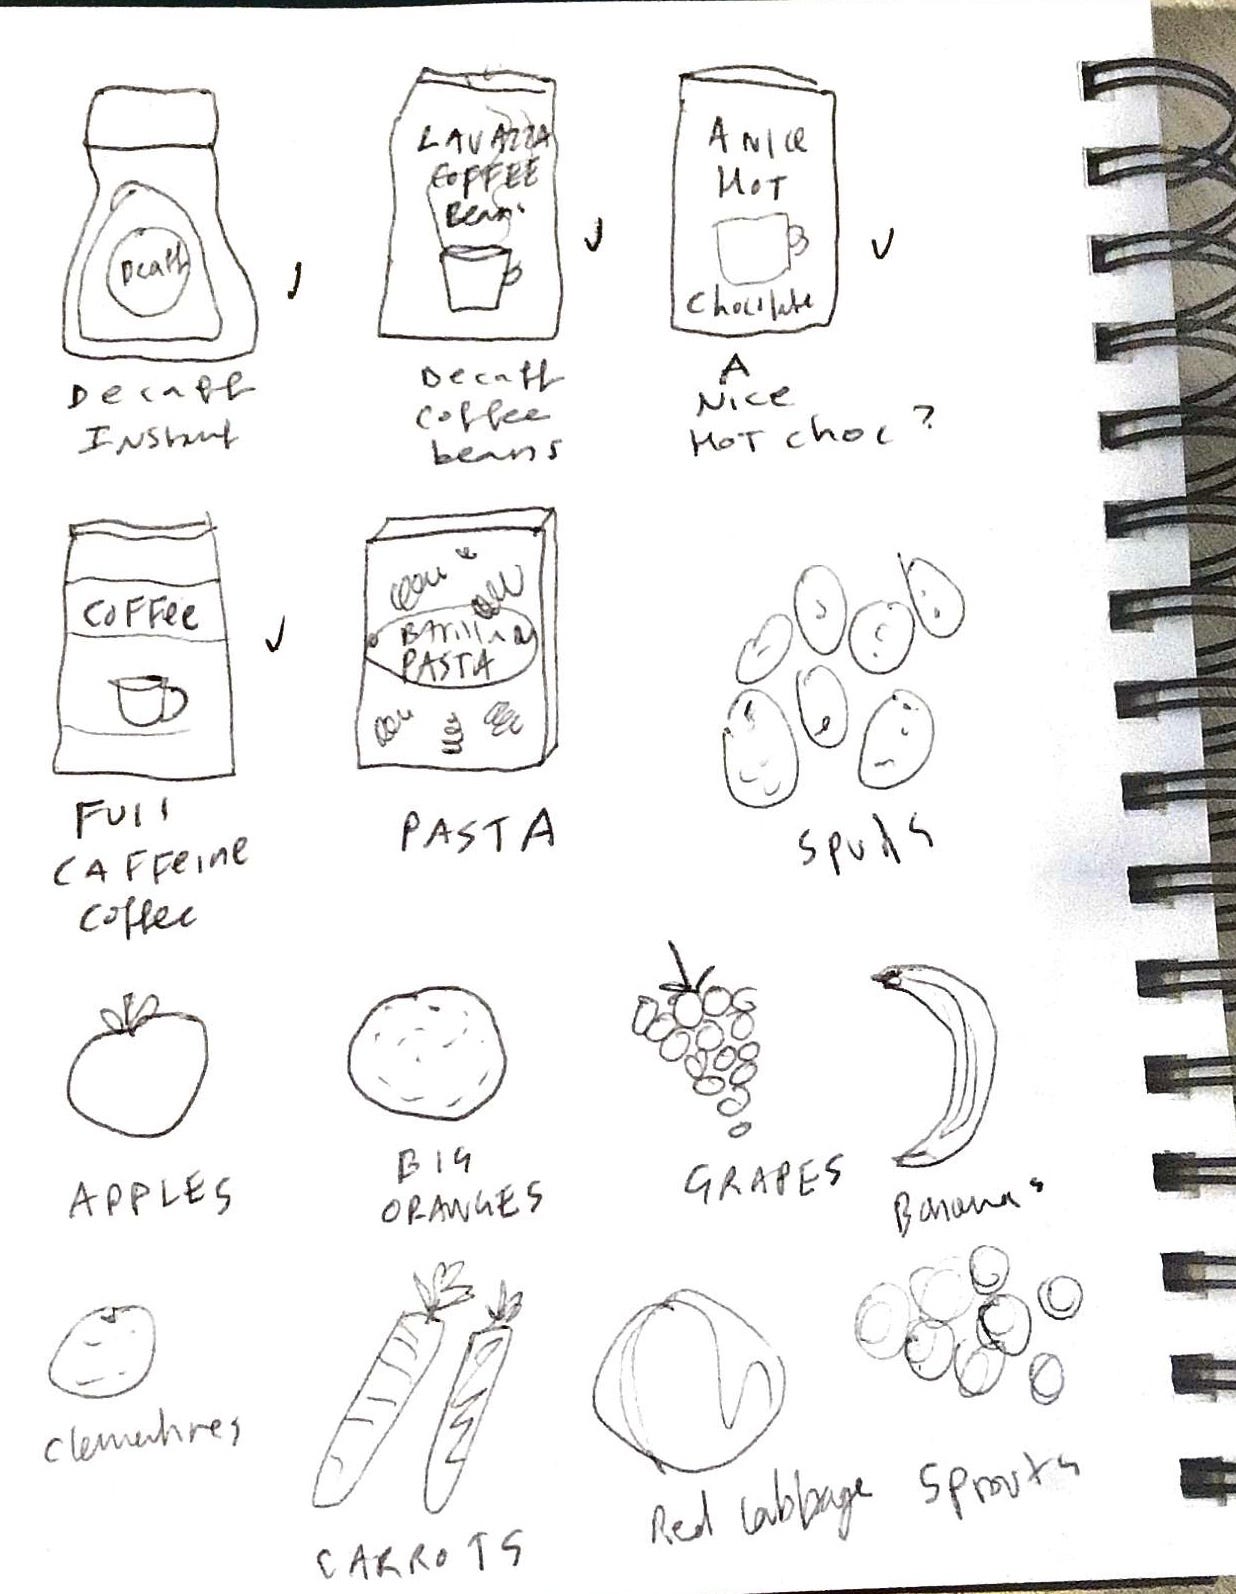 Decaff
Decaff
Instant
LAVAZZA
COFFEE
Beans
Decaff
Coffee
beans
A NICE
HOT
Chocolate
A
Nice
HOT choc?
COFFee
FUll
CAFFeine
Coffee
BArillA
PASTA
PASTA
Spuds
APPLES
BIG
ORANGES
GRAPES
Bananas
Clementines
CARROTS
Red Cabbage
Sprouts